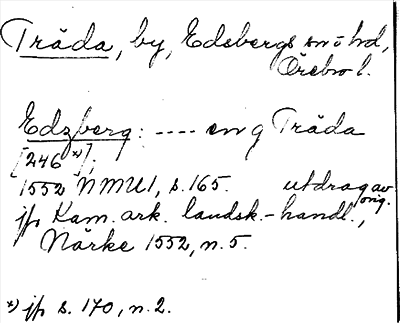 Träda, by, Edsbergs sn o hd,
Örebro l.
Edzberg: ---- en g Träda
[246 *)];
1552 NMU1, s. 165. utdrag av orig.
jfr Kam. ark. landsk.-handl.,
Närke 1552, n. 5.
*) jfr s. 170, n. 2.